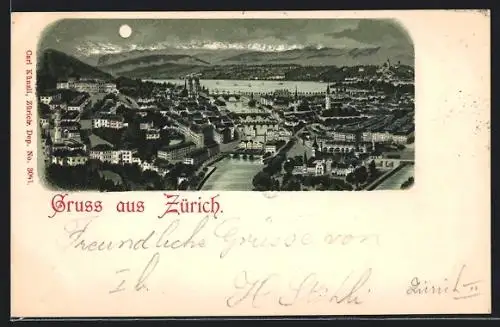 Carl Künzli, Zürich. Dep. No. 3051.
Gruss aus Zürich.
Freundliche Grüsse von
Zürich